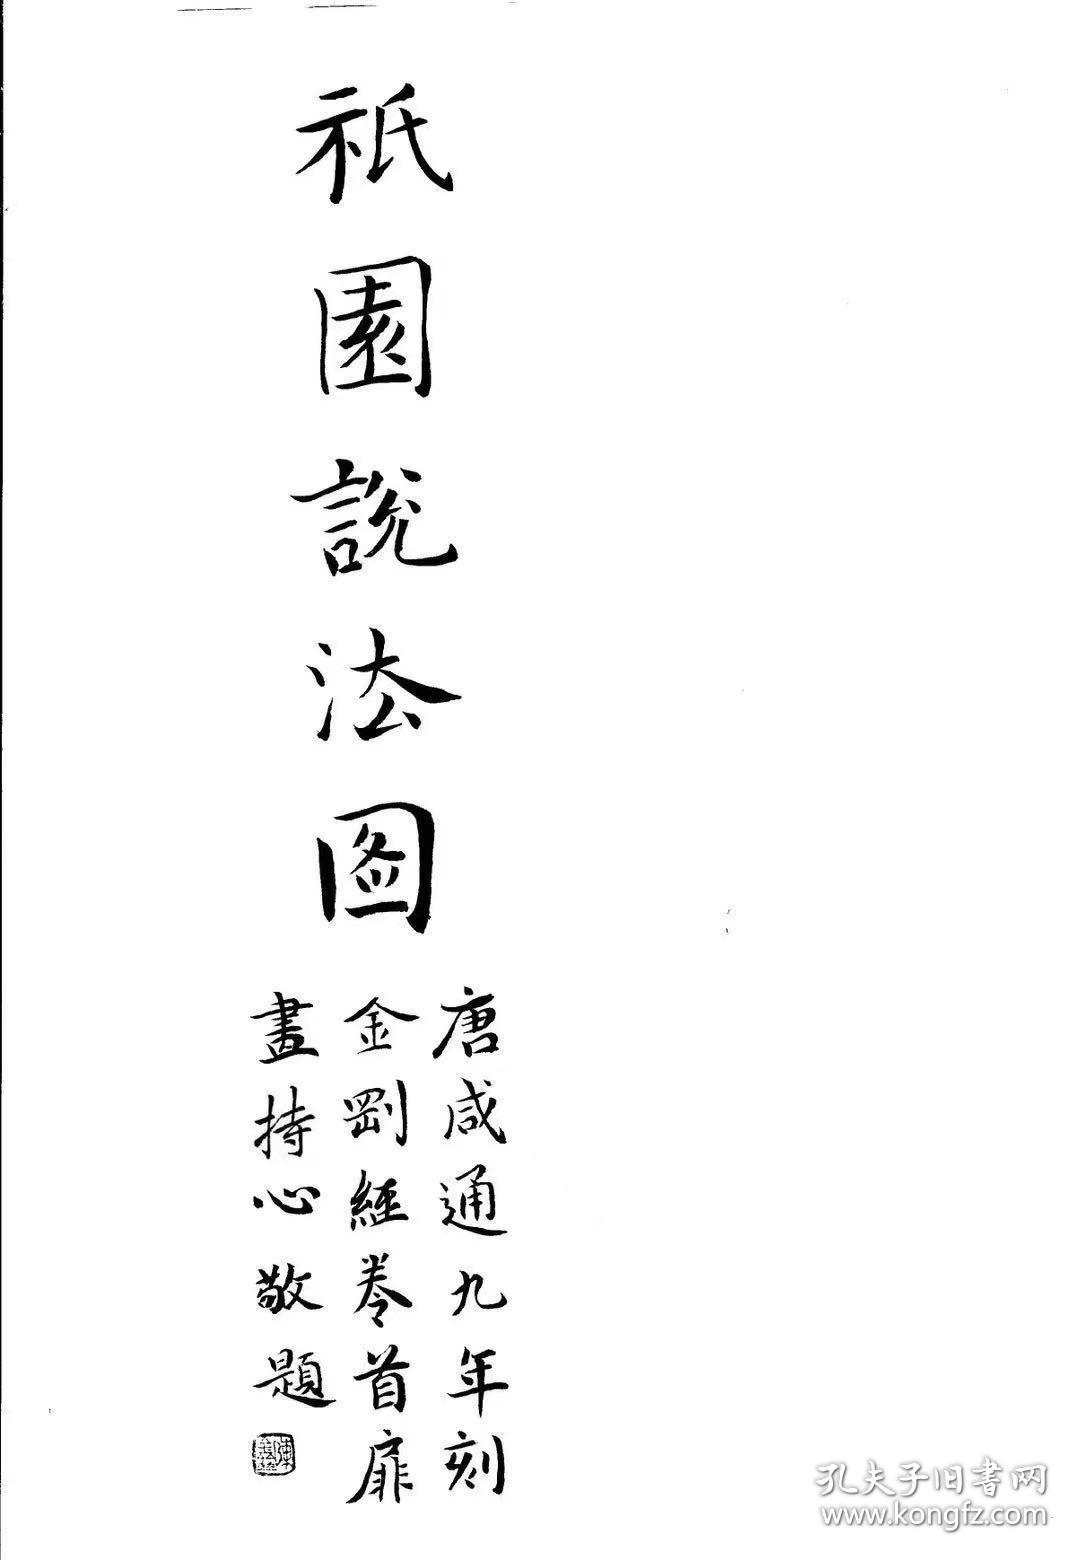 祇園說法图
唐咸通九年刻
金剛經卷首扉
畫持心敬題
孔夫子旧書网
www.kongfz.com